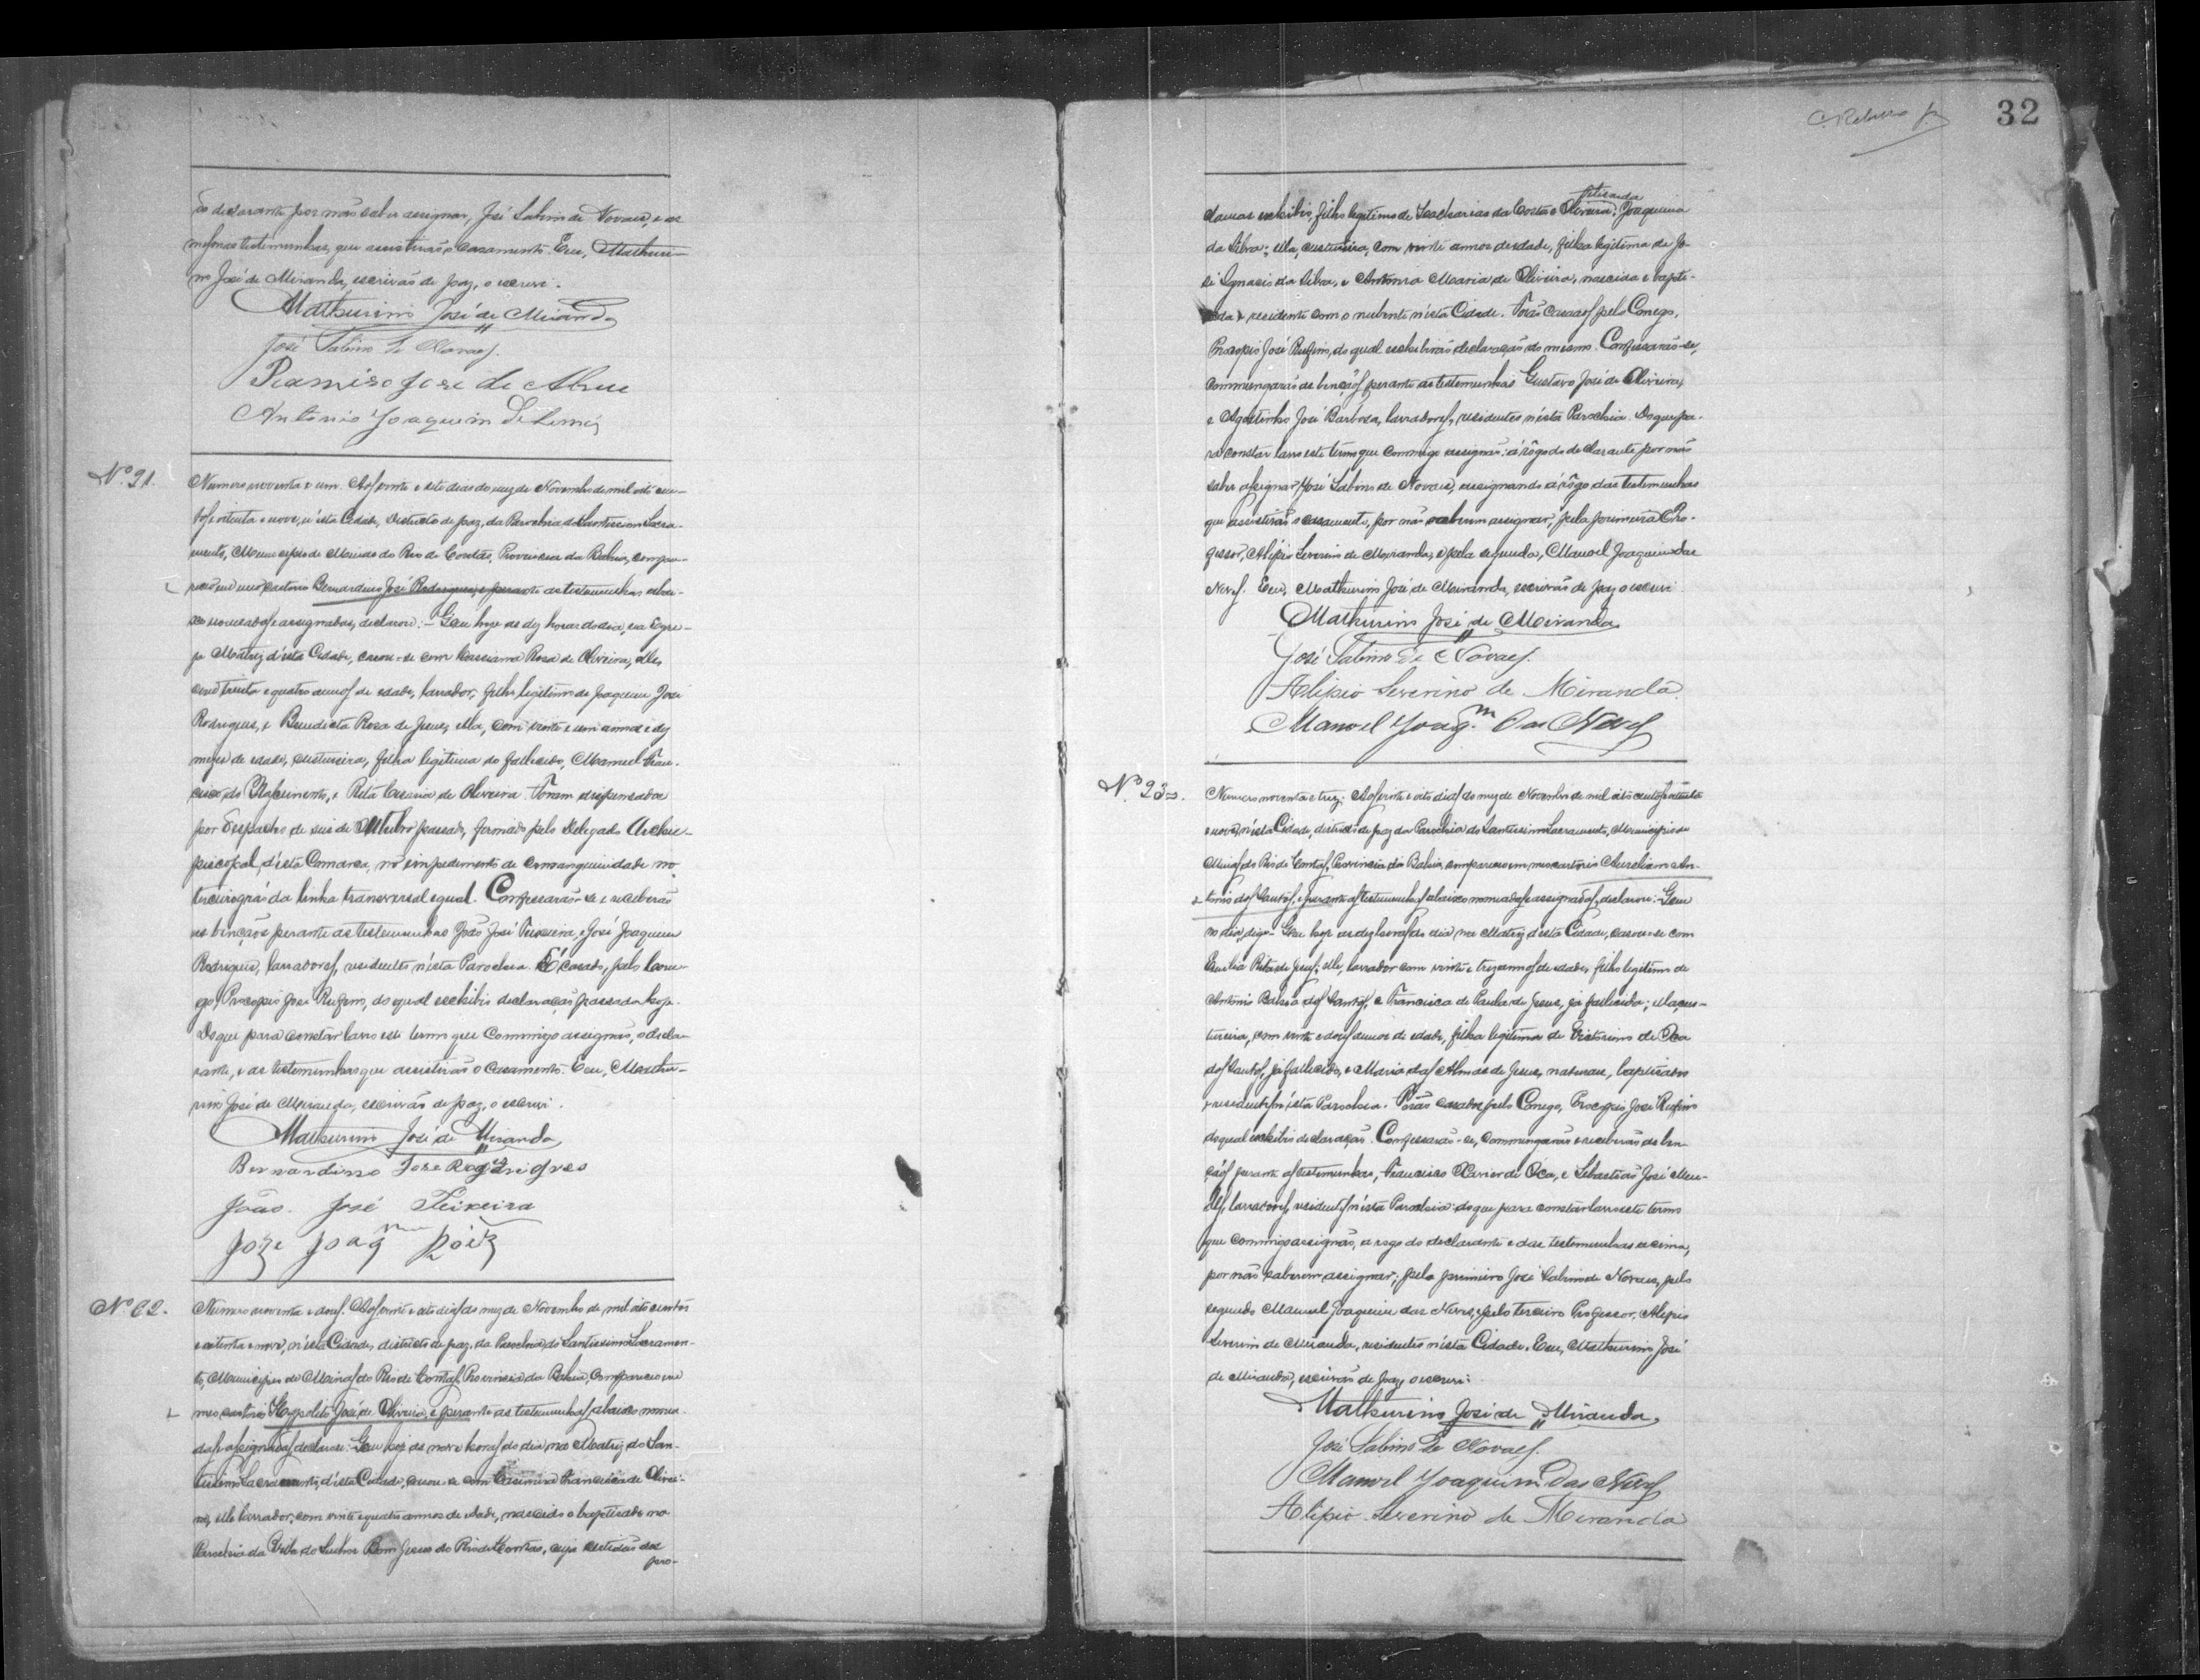 do declarante por não saber assignar, José Sabino de Novaes, e as
mesmas testemunhas, que assistirão o casamento. Eu, Mathuri-
no José de Miranda, escrivão de paz, o escrevi.
Mathurino José de Miranda
José Sabino de Novaes.
Ramiro Jose de Abreu
Antonio Joaquim de
Nº 91.
Numero noventa e um. Aos vinte e sete dias do mez de Novembro de mil oito cen-
tos e oitenta e nove, n'esta Cidade, districto de paz, da Parochia do Santissimo Sacra-
mento, Municipio de Minas do Rio de Contas, Provincia da Bahia, compa-
receo em meo cartorio Bernardino José Rodrigues, e perante as testemunhas abai-
xo nomeadas e assignadas, declarou: - Que hoje as dez horas do dia, na Egre-
ja Matriz d'esta Cidade, casou-se com Cassiana Rosa de Oliveira, elle,
com trinta e quatro annos de edade, lavrador, filho legitimo de Joaquim José
Rodrigues, e Benedicta Rosa de Jesus, ella, com vinte e um annos e dez
mezes de edade, costureira, filha legitima do fallecido, Manuel Fran-
cisco do Nascimento, e Rita Cesaria de Oliveira. Foram dispensados
por despacho de seis de Outubro passado, firmado pelo Delegado Archie-
piscopal, d'esta Comarca, no impedimento de consanguinidade no
terceiro gráo da linha transversal egual. Confessarão-se e receberão
as bençãos perante as testemunhas João José Teixeira, e José Joaquim
Rodrigues, lavradores, residentes n'esta Parochia. É casado, pelo Cone-
go, Procopio José Rufino, do qual exhibio declaração passada hoje.
Do que para constar lavro este termo que commigo assignão, o decla-
rante, e as testemunhas que assistirão o casamento. Eu, Mathu-
rino José de Miranda, escrivão de paz, o escrevi.
Mathurino José de Miranda,
Bernardino Jose Rodrigues
João José Teixeira
Joze Joaqm Roiz
Nº 92.
Numero noventa e dous. Aos vinte e oito dias do mez de Novembro de mil oito centos
e oitenta e nove, n'esta Cidade, districto de paz, da Parochia do Santissimo Sacramen-
to, Municipio de Minas do Rio de Contas, Provincia da Bahia, compareceo em
meo cartorio Hyppolito José de Oliveira, e perante as testemunhas abaixo nomea-
das e assignadas declarou: Que hoje as nove horas do dia na Matriz do San-
tissimo Sacramento, d'esta Cidade, casou-se com Casimira Francisca de Olivei-
ra, elle lavrador, com vinte e quatro annos de edade, nascido e baptisado na
Parochia da Villa do Senhor Bom Jesus do Rio de Contas, cuja certidão dos
pro-
32
petecarda
clamas exhibio, filho legitimo de Zacharias da Costa e Oliveira, Joaquina
da Silva; ella, costureira, com vinte annos de edade, filha legitima de Jo-
sé Ignacio da Silva, e Antonia Maria de Oliveira, nascida e bapti-
sada e residente com o nubente n'esta Cidade. Forão casados pelo Conego,
Procopio José Rufino, do qual exhibirão declaração do mesmo. Confessarão-se,
commungarão as bençãos perante as testemunhas Gustavo José de Oliveira,
e Agostinho José Barbosa, lavradores, residentes n'esta Parochia. Do que pa-
ra constar lavro este termo que commigo assignão: á rôgo do declarante por não
saber assignar José Sabino de Novaes, assignando á rôgo das testemunhas
que assistirão o casamento, por não saberem assignar, pela primeira o Pro-
fessor, Alipio Severino de Miranda, e pela segunda, Manoel Joaquim das
Neves. Eu, Mathurino José de Miranda, escrivão de paz o escrevi.
Mathurino José de Miranda
José Sabino de Novaes.
Alipio Severino de Miranda.
Manoel Joaqm das Neves
Nº 93.
Numero noventa e trez. Aos vinte e oito dias do mez de Novembro de mil oito centos e oitenta
e nove, n'esta Cidade, districto de paz da Parochia do Santissimo Sacramento, Municipio de
Minas do Rio de Contas, Provincia da Bahia, compareceo em meo cartorio Aureliano An-
tonio dos Santos, e perante as testemunhas abaixo nomeadas e assignadas, declarou: - Que
no dia, digo - Que hoje as dez horas do dia na Matriz d'esta Cidade, casou-se com
Emilia Rita de Jesus; elle, lavrador com vinte e trez annos de edade, filho legitimo de
Antonio Bahia dos Santos, e Francisca de Paula de Jesus, já fallecida; ella, cos-
tureira, com vinte e dous annos de edade, filha legitima de Victorino de Oca
dos Santos, já fallecido, e Maria das Almas de Jesus, naturaes, baptisados
e residentes n'esta Parochia. Forão casados pelo Conego, Procopio José Rufino
do qual exhibio declaração. Confessarão-se, commungarão e receberão as ben-
çãos perante as testemunhas, Francisco Xavier de Oca, e Sebastião José Men-
des, lavradores, residentes n'esta Parochia: do que para constar lavro este termo
que commigo assignão, a rogo do declarante e das testemunhas acima,
por não saberem assignar; pelo primeiro José Sabino de Novaes, pelo
segundo Manuel Joaquim das Neves, e pelo terceiro Professor, Alipio
Severino de Miranda, residentes n'esta Cidade. Eu, Mathurino José
de Miranda, escrivão de paz, o escrevi.
Mathurino José de Miranda.
José Sabino de Novaes.
Manoel Joaquim das Neves
Alipio Severino de Miranda